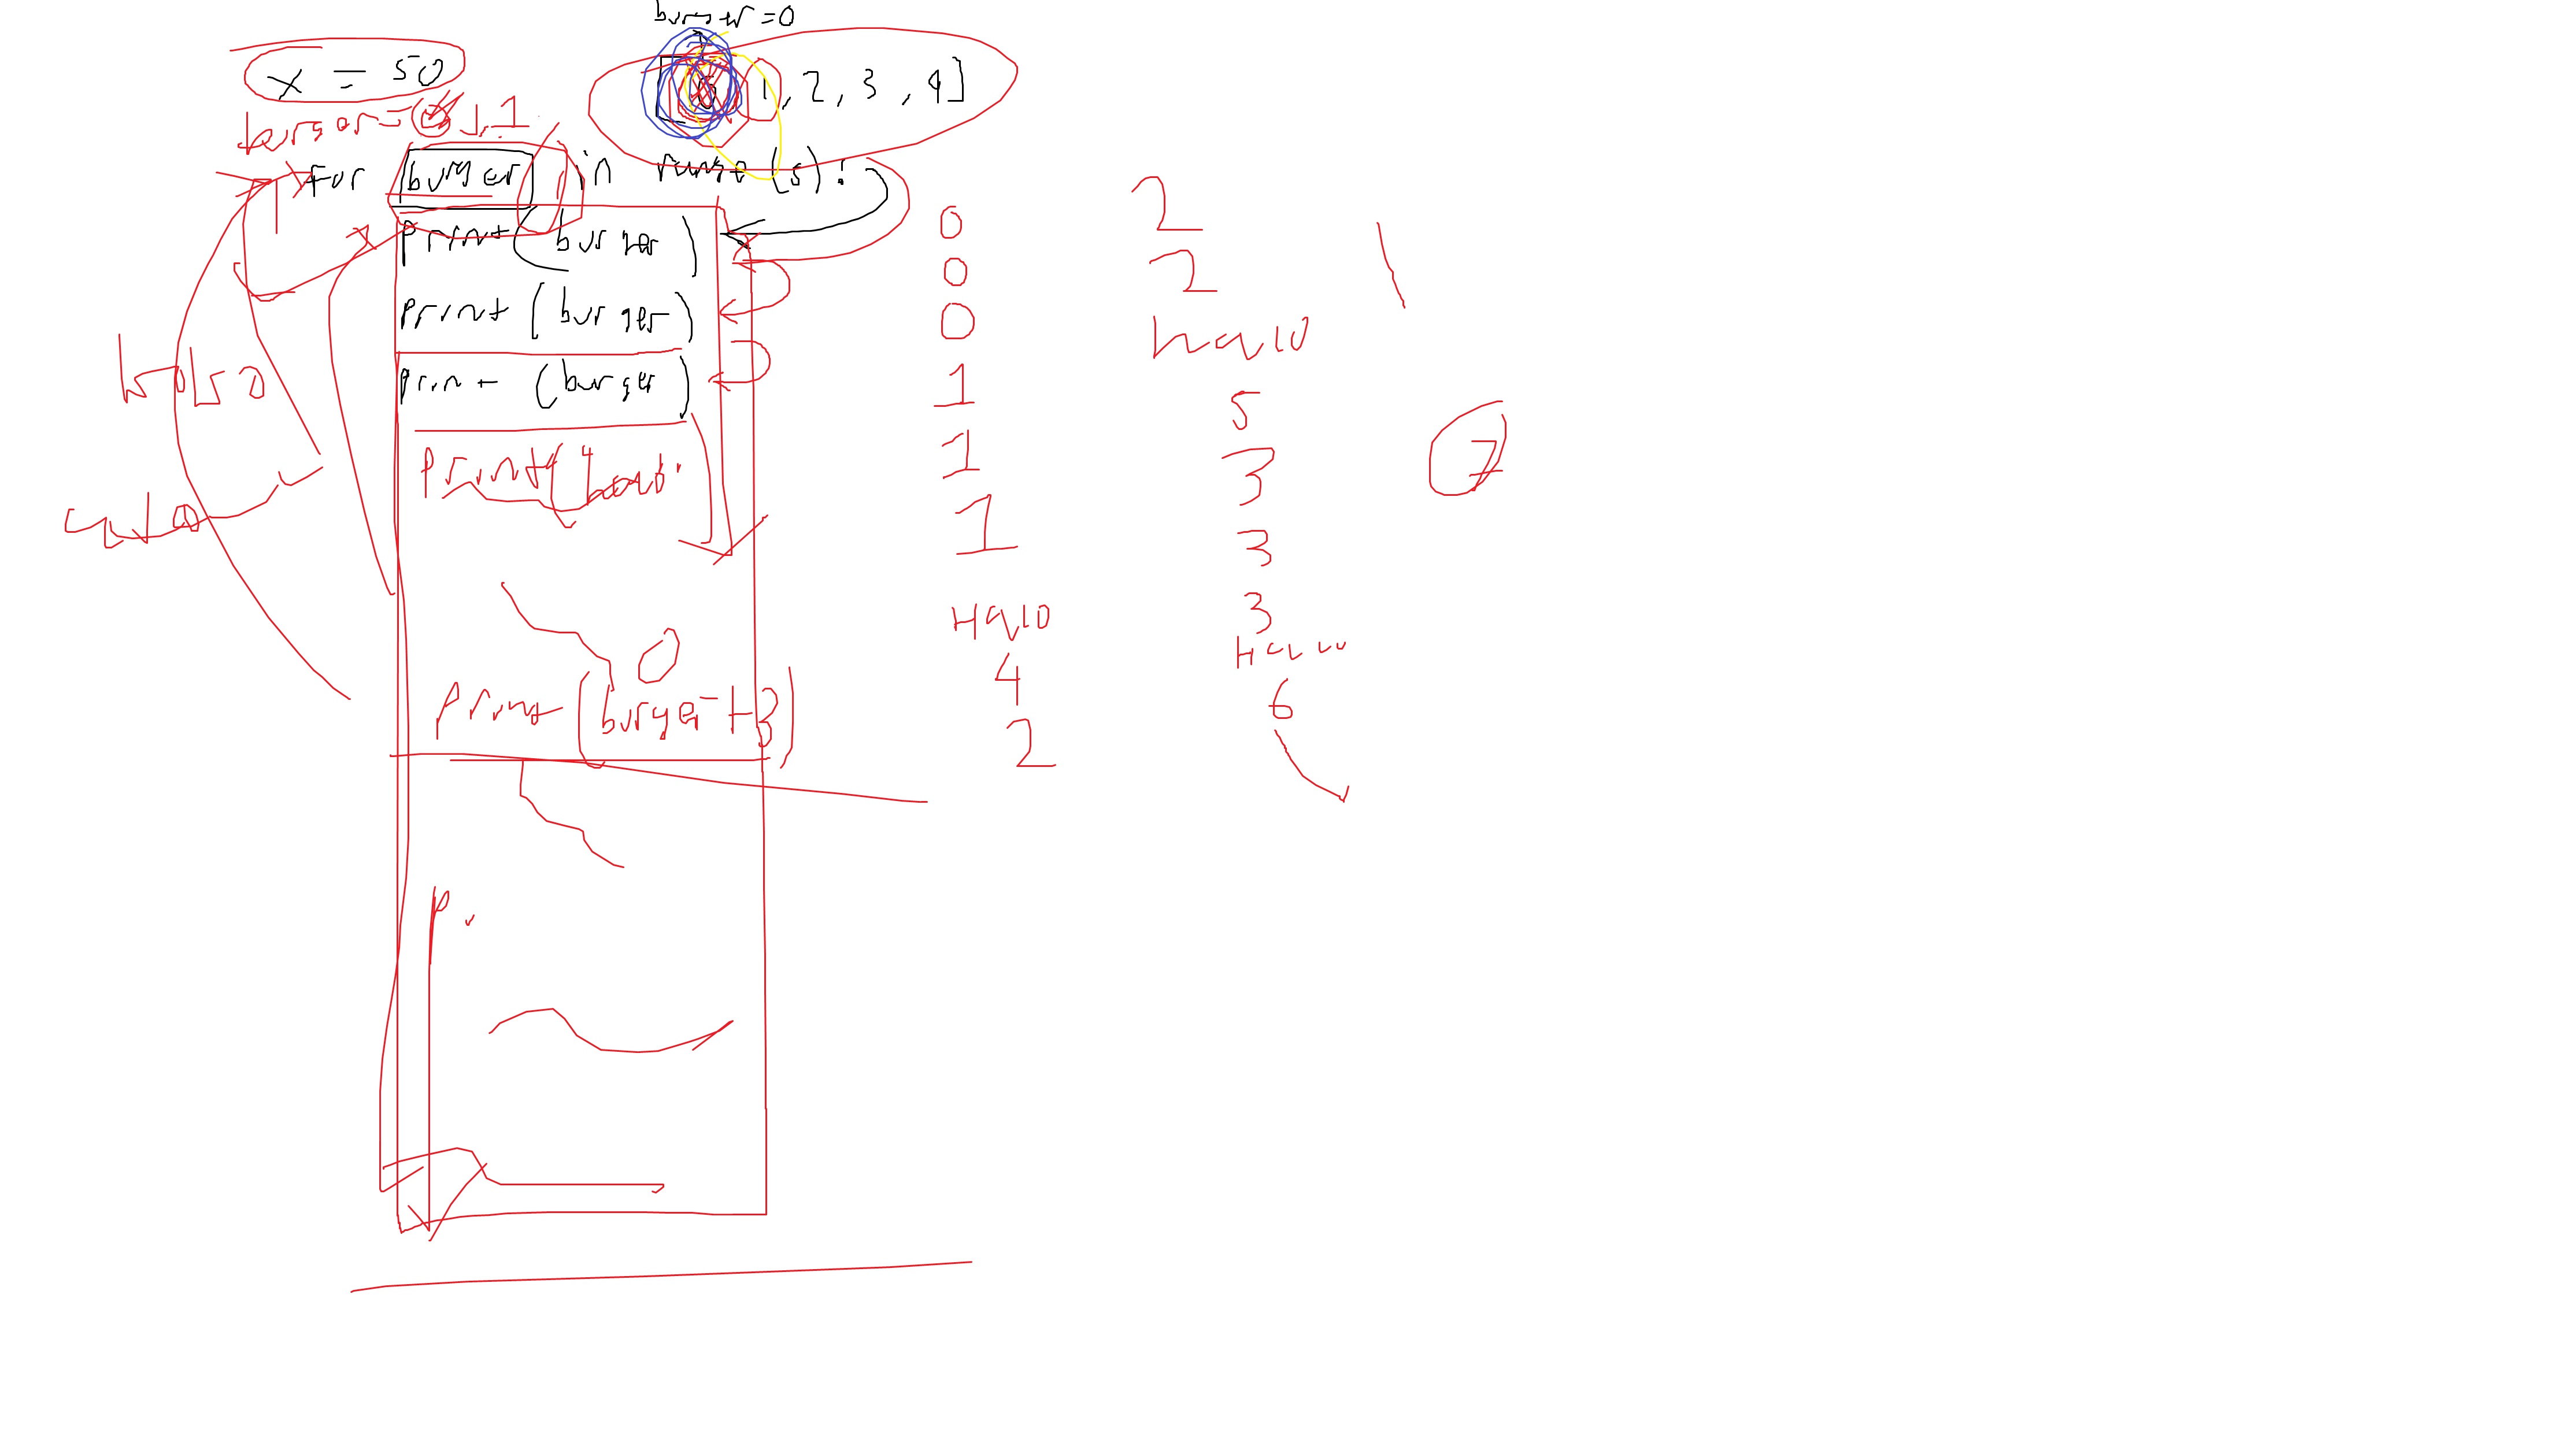 burger=0
x = 50
[0, 1, 2, 3, 4]
for burger in range(5):
print(burger)
print(burger)
print(burger)
print(
0
print(burger+3)
p
0
0
0
1
1
1
Halo
4
2
2
2
halo
5
3
3
3
6
7